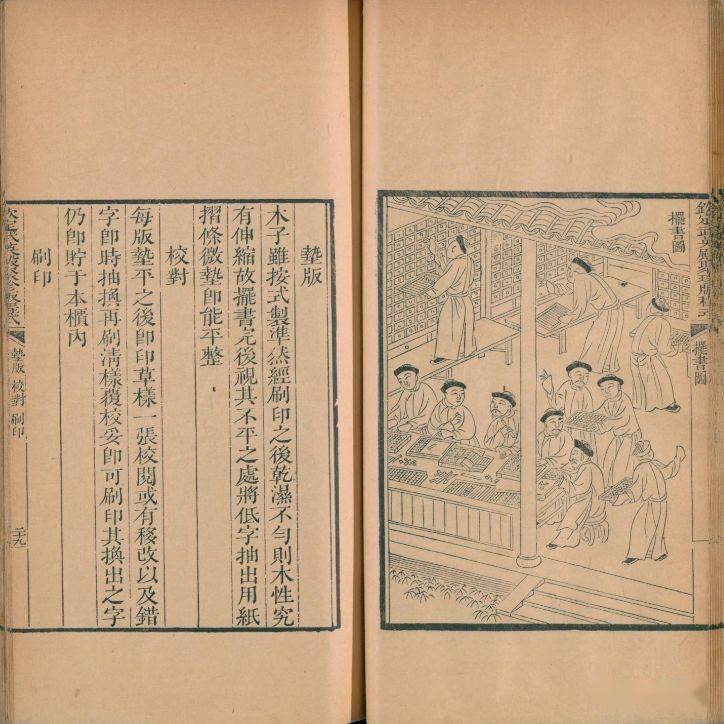 欽定武英殿聚珍版程式
擺書圖
擺書圖
墊版
木子雖按式製準然經刷印之後乾濕不勻則木性究
有伸縮故擺書完後視其不平之處將低字抽出用紙
摺條微墊卽能平整
校對
每版墊平之後卽印草樣一張校閱或有移改以及錯
字卽時抽換再刷清樣覆校妥卽可刷印其換出之字
仍卽貯于本櫃內
刷印
欽定武英殿聚珍版程式
墊版 校對 刷印
二十九